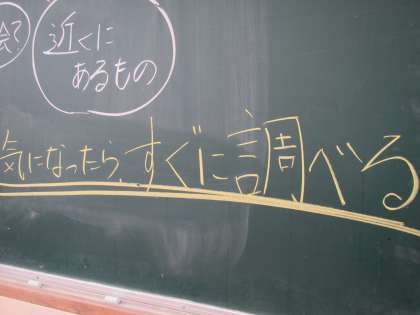 会?
近くに
あるもの
気になったら、すぐに調べる